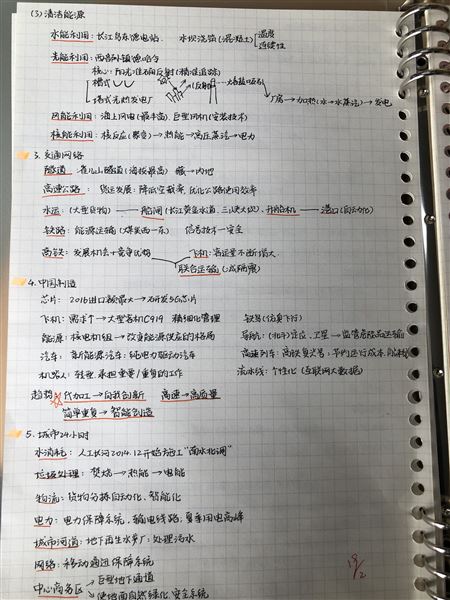 (3) 清洁能源
水能利用：长江乌东德电站. 水坝浇筑（混凝土）温度 连续性
光能利用：西部小镇德令哈
核心：阳光准确反射（精准追踪）
槽式
塔式光热发电厂 （反射 厂房→加热（水→水蒸汽）→发电
风能利用：海上风电（最丰富） 巨型风机（安装技术）
核能利用：核反应（裂变）→热能→高压蒸汽→电力
3. 交通网络
隧道：雀儿山隧道（海拔最高） 藏→内地
高速公路：货运发展：降低空载率，优化公路使用效率
水运：（大型货物）—船闸（长江黄金水道. 三峡大坝）. 升船机—港口（自动化）
铁路：能源运输（煤炭西→东） 信号技术→安全
高铁：发展机会+竞争优势 飞机：客运量不断增大
联合运输
4. 中国制造
芯片：2016进口额最大→研发5G芯片
飞机：零手个→大型客机C919 精细化管理
能源：核电机组→改变能源供应的格局 导航：（北斗）定位、卫星→监管危险品运输
汽车：新能源汽车：纯电力驱动汽车 高速列车：高铁复兴号：节约运行成本
机器人：轻型. 承担重要/重复的工作 流水线：个性化（互联网大数据）
趋势 代加工→自我创新 高速→高质量
简单重复→智能创造
5. 城市24小时
水消耗：人工长河2014.12开始施工"南水北调"
垃圾处理：焚烧→热能→电能
物流：货物分拣自动化、智能化
电力：电力保障系统、输电线路. 夏季用电高峰
城市河道：地下再生水厂：处理污水
网络：移动通迅保障系统
中心商务区 巨型地下通道
使地面自然绿化、安全系统
19/2